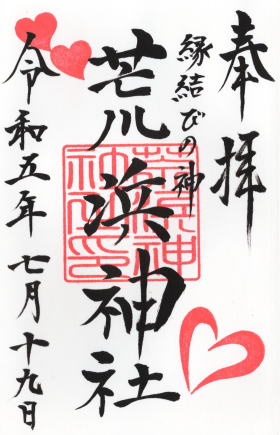 奉拝
縁結びの神
荒川浜神社
令和五年七月十九日